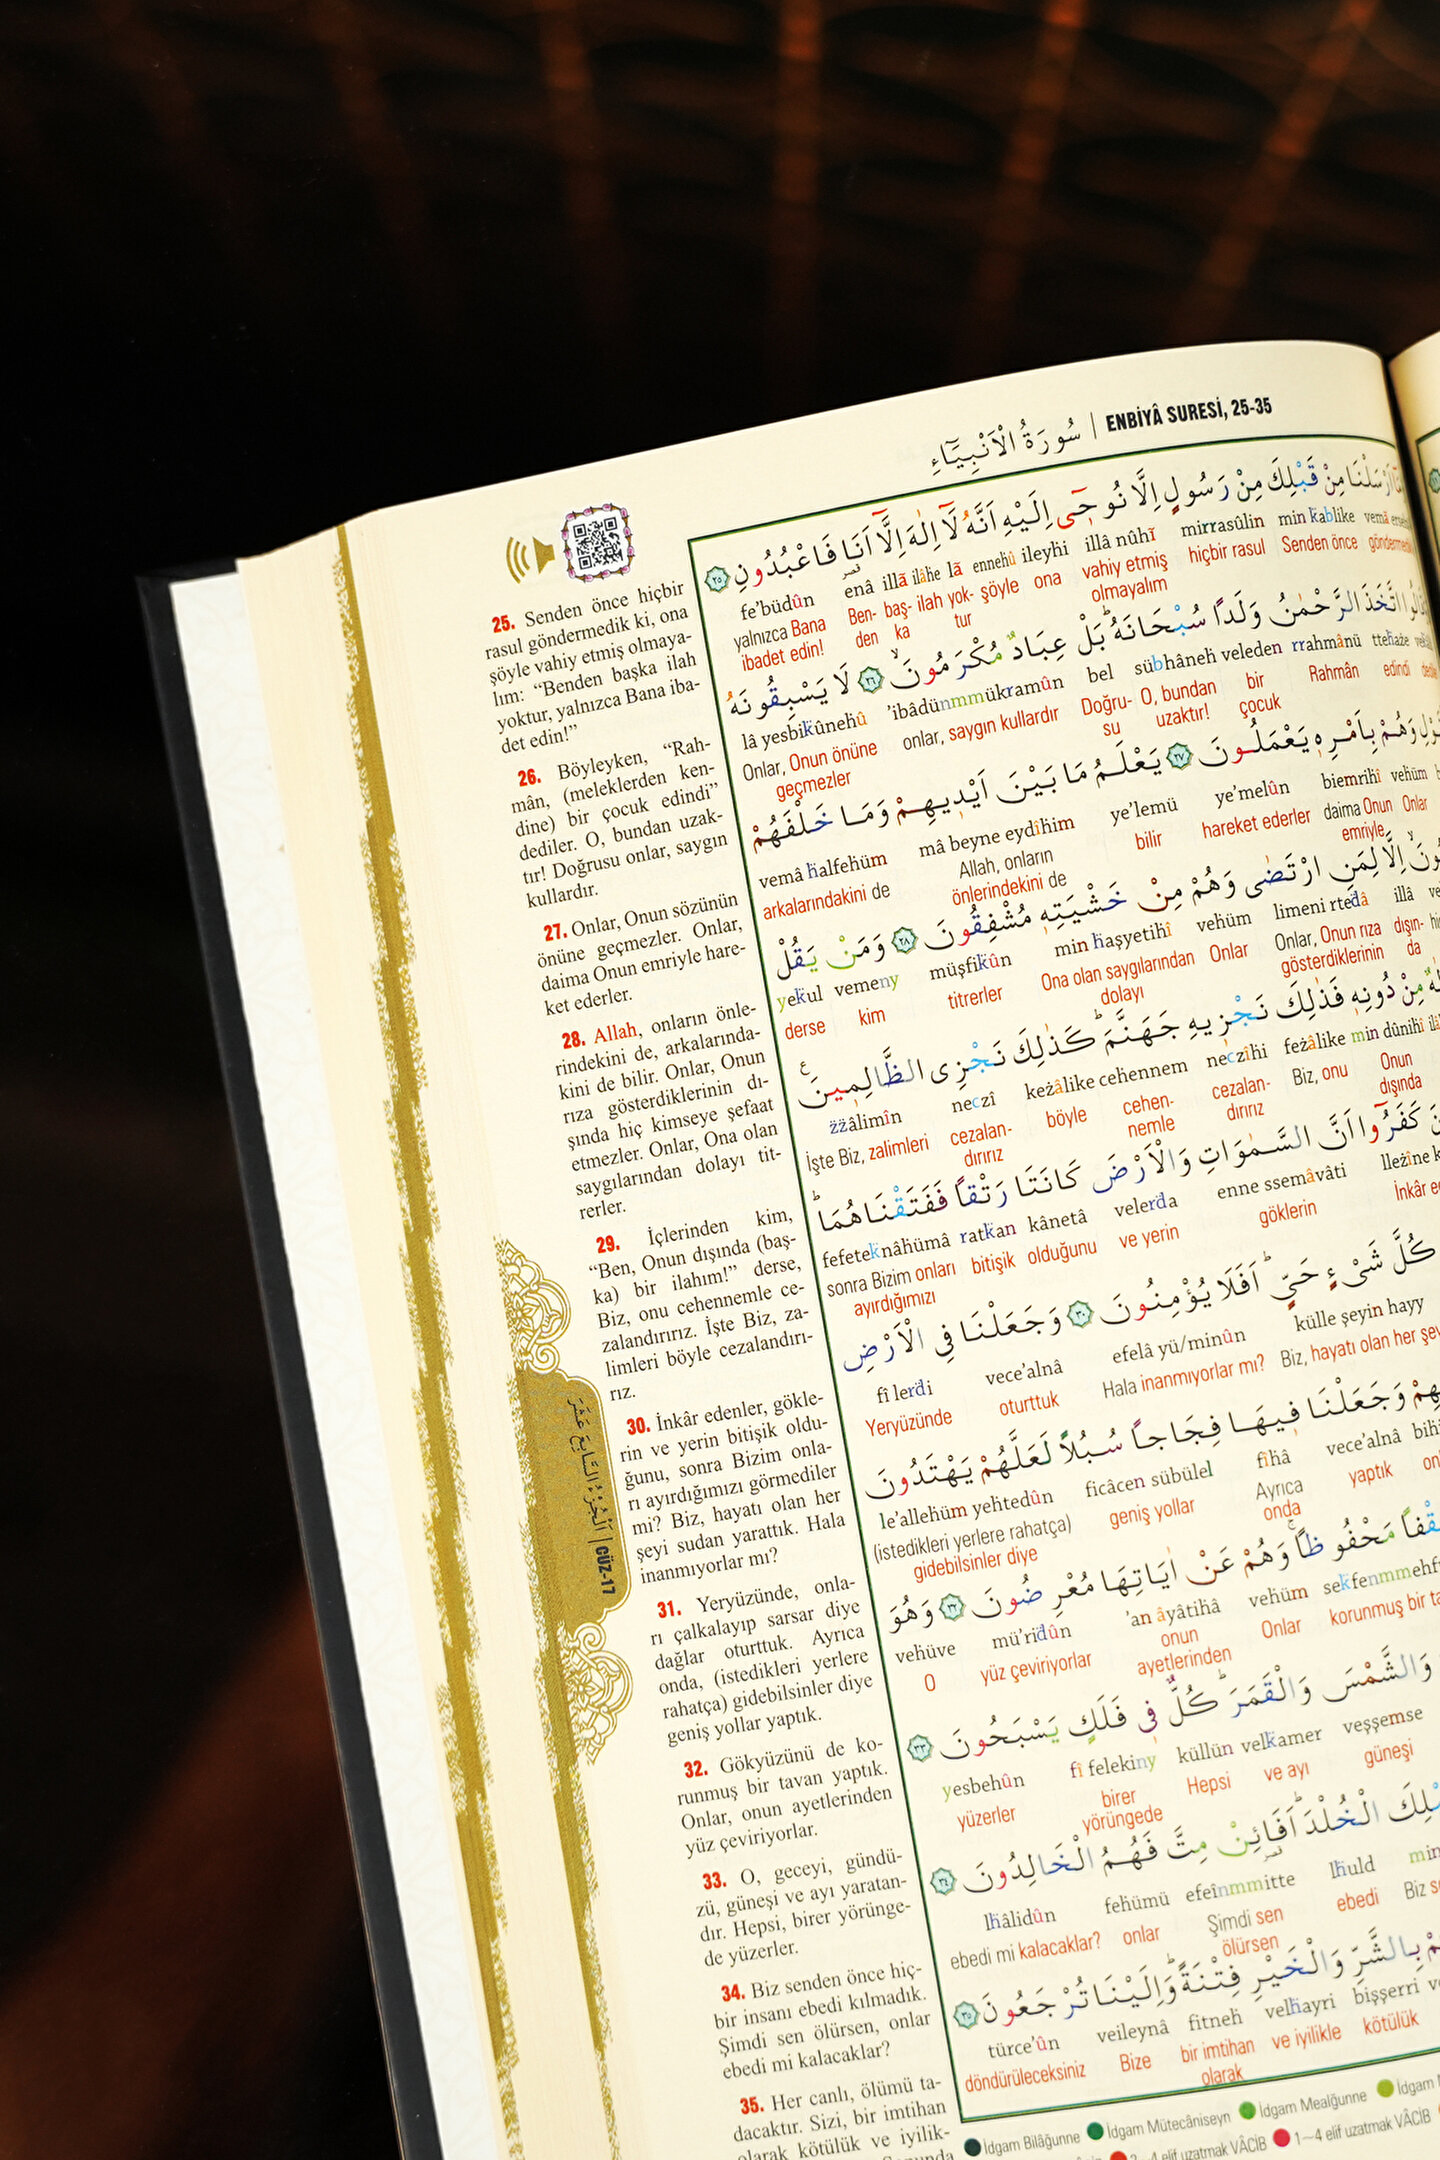 سُورَةُ الْاَنْبِيَٓاءِ | ENBİYÂ SURESİ, 25-35
25. Senden önce hiçbir
rasul göndermedik ki, ona
şöyle vahiy etmiş olmaya-
lım: “Benden başka ilah
yoktur, yalnızca Bana iba-
det edin!”
26. Böyleyken, “Rah-
mân, (meleklerden ken-
dine) bir çocuk edindi”
dediler. O, bundan uzak-
tır! Doğrusu onlar, saygın
kullardır.
27. Onlar, Onun sözünün
önüne geçmezler. Onlar,
daima Onun emriyle hare-
ket ederler.
28. Allah, onların önle-
rindekini de, arkalarında-
kini de bilir. Onlar, Onun
rıza gösterdiklerinin dı-
şında hiç kimseye şefaat
etmezler. Onlar, Ona olan
saygılarından dolayı tit-
rerler.
29. İçlerinden kim,
“Ben, Onun dışında (baş-
ka) bir ilahım!” derse,
Biz, onu cehennemle ce-
zalandırırız. İşte Biz, za-
limleri böyle cezalandırı-
rız.
30. İnkâr edenler, gökle-
rin ve yerin bitişik oldu-
ğunu, sonra Bizim onla-
rı ayırdığımızı görmediler
mi? Biz, hayatı olan her
şeyi sudan yarattık. Hala
inanmıyorlar mı?
31. Yeryüzünde, onla-
rı çalkalayıp sarsar diye
dağlar oturttuk. Ayrıca
onda, (istedikleri yerlere
rahatça) gidebilsinler diye
geniş yollar yaptık.
32. Gökyüzünü de ko-
runmuş bir tavan yaptık.
Onlar, onun ayetlerinden
yüz çeviriyorlar.
33. O, geceyi, gündü-
zü, güneşi ve ayı yaratan-
dır. Hepsi, birer yörünge-
de yüzerler.
34. Biz senden önce hiç-
bir insanı ebedi kılmadık.
Şimdi sen ölürsen, onlar
ebedi mi kalacaklar?
35. Her canlı, ölümü ta-
dacaktır. Sizi, bir imtihan
olarak kötülük ve iyilik-
اَلْجُزْءُ السَّابِعَ عَشَرَ | CÜZ-17
اَرْسَلْنَا مِنْ قَبْلِكَ مِنْ رَسُولٍ اِلَّا نُوحٖٓى اِلَيْهِ اَنَّهُ لَٓا اِلٰهَ اِلَّٓا اَنَا۬ فَاعْبُدُونِ ﴿٢٥﴾
fe’büdûn enâ illâ ilâhe lâ ennehû ileyhi illâ nûhî mirrasûlin min kablike vemâ
yalnızca Bana Ben- baş- ilah yok- şöyle ona vahiy etmiş hiçbir rasul Senden önce
ibadet edin! den ka tur olmayalım
اتَّخَذَ الرَّحْمٰنُ وَلَدًا سُبْحَانَهُ بَلْ عِبَادٌ مُكْرَمُونَ ﴿٢٦﴾ لَا يَسْبِقُونَهُ
lâ yesbikûnehû ’ibâdünmmükramûn bel sübhâneh veleden rrahmânü ttehaże
Onlar, Onun önüne onlar, saygın kullardır Doğru- O, bundan bir Rahmân edindi
geçmezler su uzaktır! çocuk
وَهُمْ بِاَمْرِهٖ يَعْمَلُونَ ﴿٢٧﴾ يَعْلَمُ مَا بَيْنَ اَيْدٖيهِمْ وَمَا خَلْفَهُمْ
vemâ halfehüm mâ beyne eydîhim ye’lemü ye’melûn biemrihî vehüm
arkalarındakini de Allah, onların bilir hareket ederler daima Onun Onlar
önlerindekini de emriyle
اِلَّا لِمَنِ ارْتَضٰى وَهُمْ مِنْ خَشْيَتِهٖ مُشْفِقُونَ ﴿٢٨﴾ وَمَنْ يَقُلْ
yekul vemeny müşfikûn min haşyetihî vehüm limeni rtedâ illâ
derse kim titrerler Ona olan saygılarından Onlar Onlar, Onun rıza dışın-
dolayı gösterdiklerinin da
مِنْ دُونِهٖ فَذٰلِكَ نَجْزٖيهِ جَهَنَّمَ كَذٰلِكَ نَجْزِى الظَّالِمٖينَ
żżâlimîn neczî keżâlike cehennem neczîhi feżâlike min dûnihî
İşte Biz, zalimleri cezalan- böyle cehen- cezalan- Biz, onu Onun
dırırız nemle dırırız dışında
كَفَرُٓوا اَنَّ السَّمٰوَاتِ وَالْاَرْضَ كَانَتَا رَتْقًا فَفَتَقْنَاهُمَا
fefeteknâhümâ ratkan kânetâ velerda enne ssemâvâti
sonra Bizim onları bitişik olduğunu ve yerin göklerin
ayırdığımızı
كُلَّ شَىْءٍ حَىٍّ اَفَلَا يُؤْمِنُونَ ﴿٣٠﴾ وَجَعَلْنَا فِى الْاَرْضِ
fî lerdi vece’alnâ efelâ yü/minûn külle şeyin hayy
Yeryüzünde oturttuk Hala inanmıyorlar mı? Biz, hayatı olan her
وَجَعَلْنَا فٖيهَا فِجَاجًا سُبُلًا لَعَلَّهُمْ يَهْتَدُونَ
le’allehüm yehtedûn ficâcen sübülel fîhâ vece’alnâ
(istedikleri yerlere rahatça) geniş yollar Ayrıca yaptık
gidebilsinler diye onda
مَحْفُوظًا وَهُمْ عَنْ اٰيَاتِهَا مُعْرِضُونَ ﴿٣٢﴾ وَهُوَ
vehüve mü’ridûn ’an âyâtihâ vehüm
O yüz çeviriyorlar onun Onlar korunmuş bir
ayetlerinden
وَالشَّمْسَ وَالْقَمَرَ كُلٌّ فٖى فَلَكٍ يَسْبَحُونَ ﴿٣٣﴾
yesbehûn fî felekiny küllün velkamer veşşemse
yüzerler birer Hepsi ve ayı güneşi
yörüngede
الْخُلْدَ اَفَا۬ئِنْ مِتَّ فَهُمُ الْخَالِدُونَ ﴿٣٤﴾
lhâlidûn fehümü efeînmmitte lhuld
ebedi mi kalacaklar? onlar Şimdi sen ebedi Biz
ölürsen
بِالشَّرِّ وَالْخَيْرِ فِتْنَةً وَاِلَيْنَا تُرْجَعُونَ ﴿٣٥﴾
türce’ûn veileynâ fitneh velhayri bişşerri
döndürüleceksiniz Bize bir imtihan ve iyilikle kötülük
olarak
İdgam Bilâğunne İdgam Mütecâniseyn İdgam Mealğunne İdgam
elif uzatmak VÂCİB 1–4 elif uzatmak VÂCİB